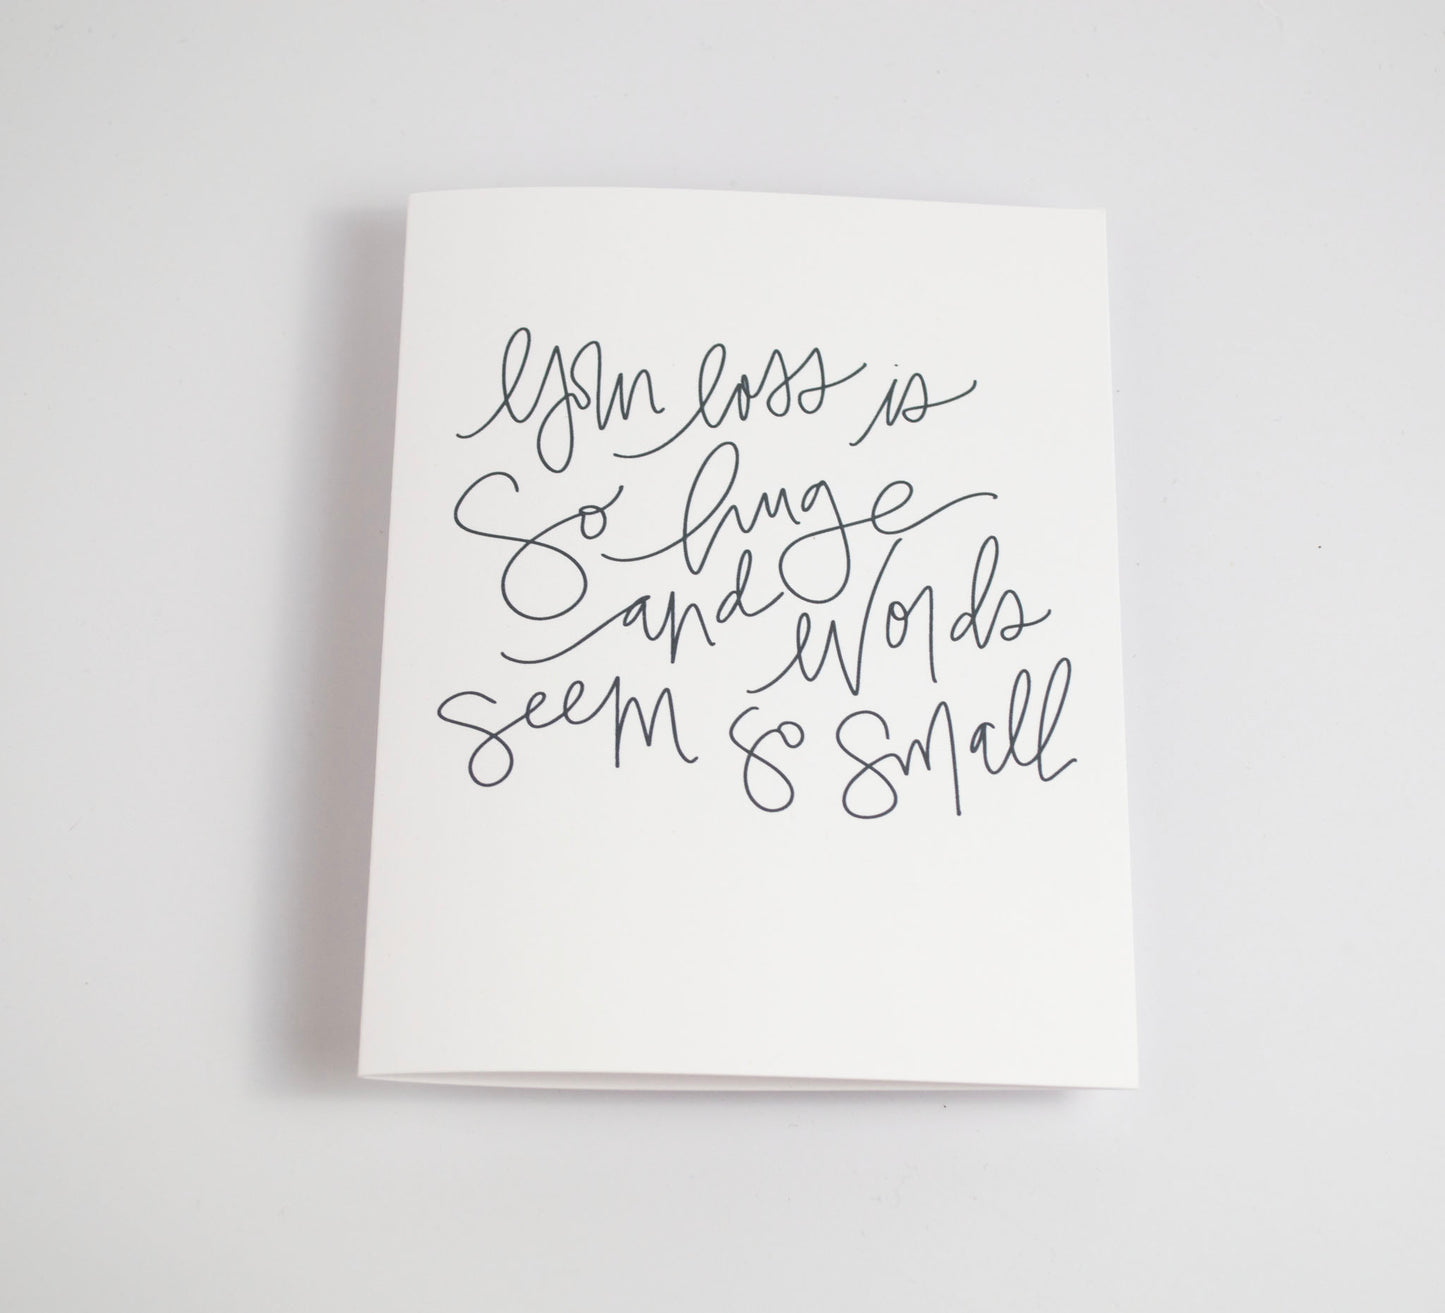 Your loss is
So huge
and words
seem so small